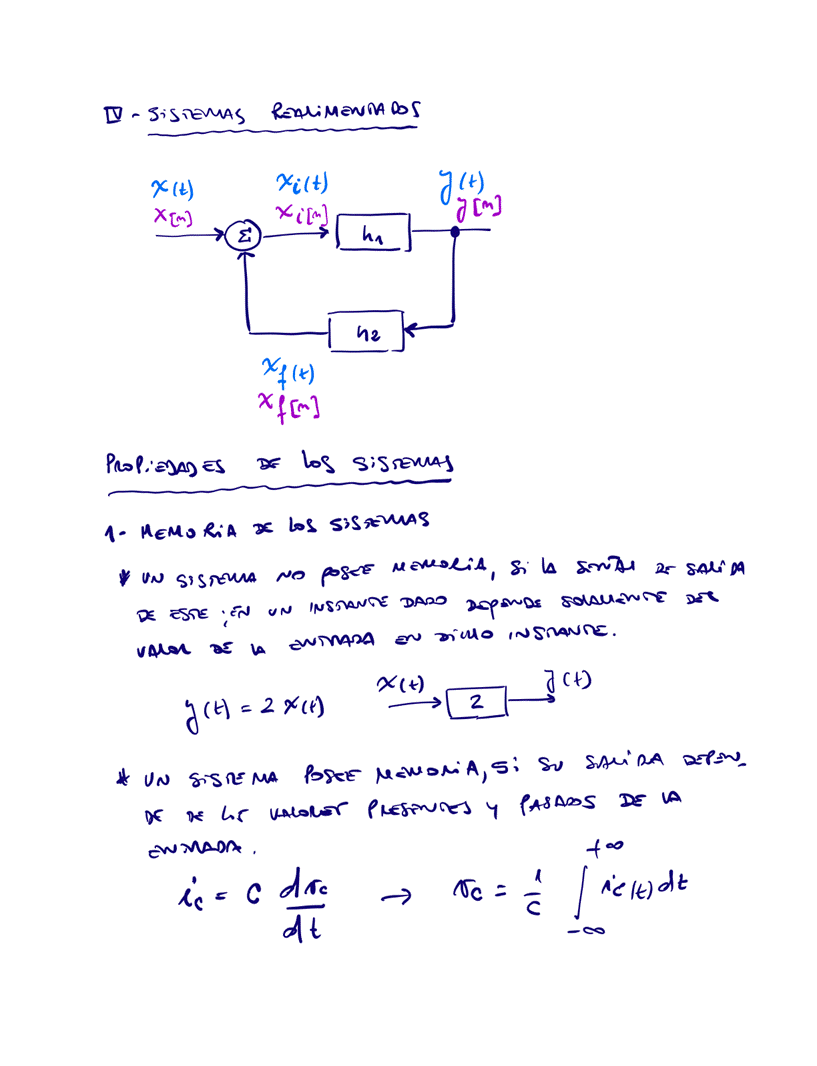 IV - SISTEMAS REALIMENTADOS
x(t) xi(t) y(t)
x[n] xi[n] y[n]
Σ h1
h2
xf(t)
xf[n]
PROPIEDADES DE LOS SISTEMAS
1- MEMORIA DE LOS SISTEMAS
* UN SISTEMA NO POSEE MEMORIA, SI LA SEÑAL DE SALIDA
DE ESTE ; EN UN INSTANTE DADO DEPENDE SOLAMENTE DEL
VALOR DE LA ENTRADA EN DICHO INSTANTE.
y(t) = 2 x(t) x(t) 2 y(t)
* UN SISTEMA POSEE MEMORIA, SI SU SALIDA DEPEN_
DE DE LOS VALORES PRESENTES Y PASADOS DE LA
ENTRADA.
ic = C dvc/dt → vc = 1/C ∫_{-∞}^{+∞} ic(t) dt